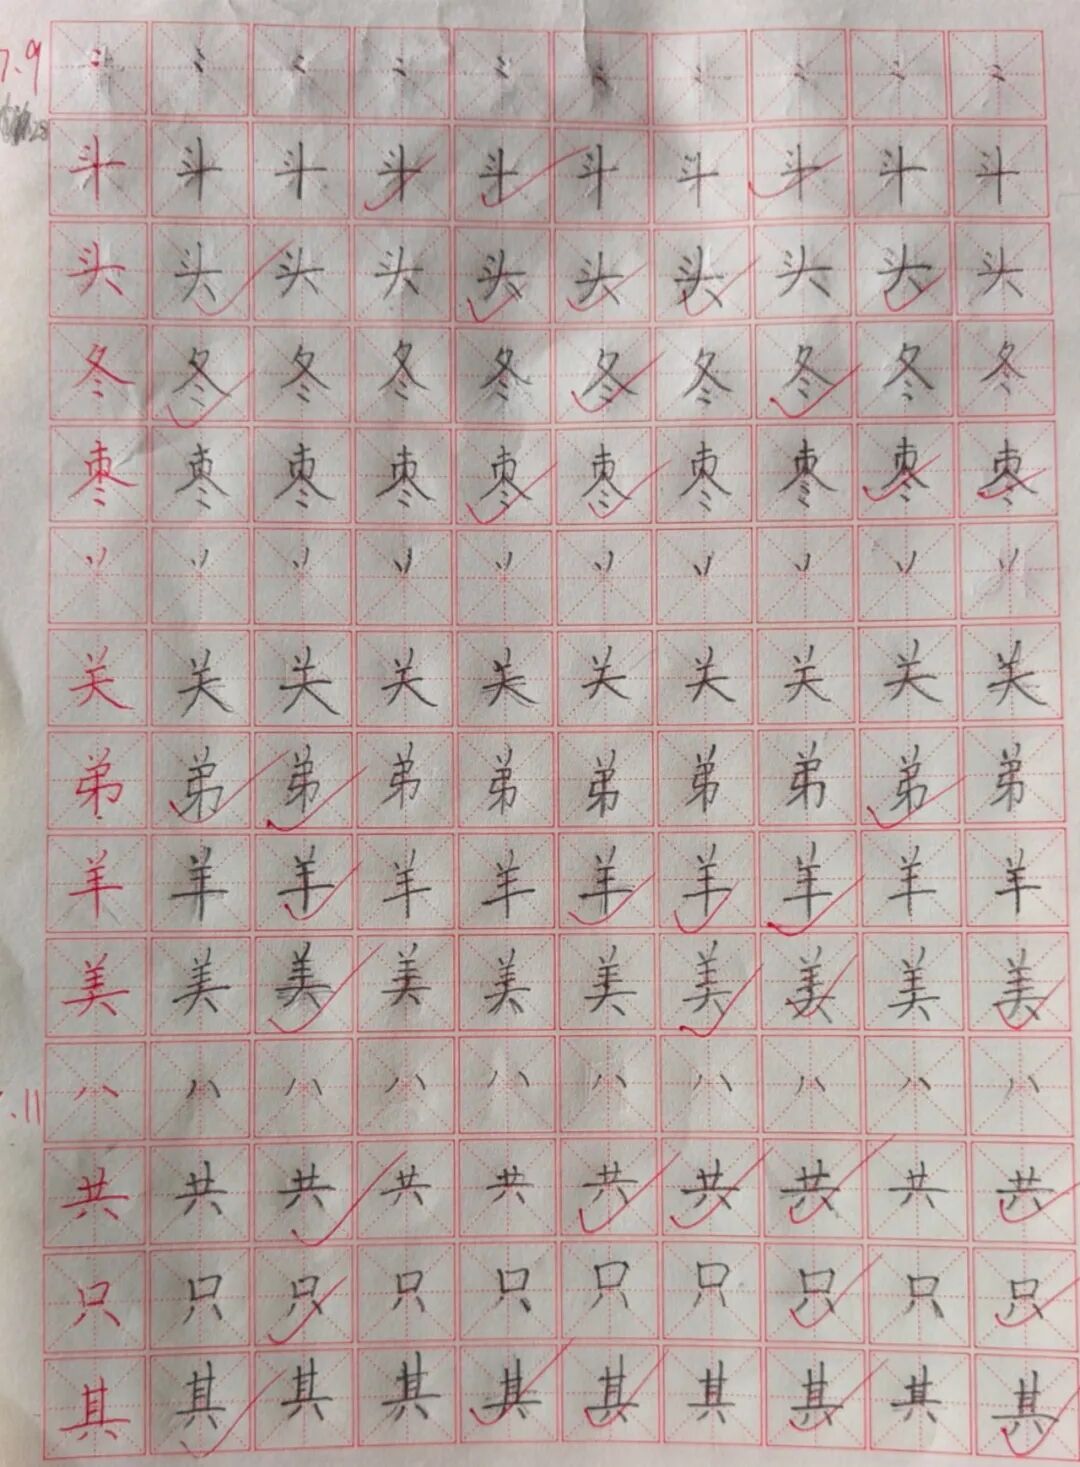 7.9
28
斗斗斗斗斗斗斗斗斗斗
头头头头头头头头头头
冬冬冬冬冬冬冬冬冬冬
枣枣枣枣枣枣枣枣枣枣
丷丷丷丷丷丷丷丷丷丷
关关关关关关关关关关
弟弟弟弟弟弟弟弟弟弟
羊羊羊羊羊羊羊羊羊羊
美美美美美美美美美美
.11
八八八八八八八八八八
共共共共共共共共共共
只只只只只只只只只只
其其其其其其其其其其